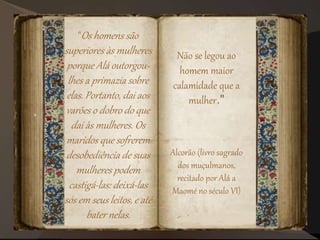 "Os homens são
superiores às mulheres
porque Alá outorgou-
lhes a primazia sobre
elas. Portanto, dai aos
varões o dobro do que
dai às mulheres. Os
maridos que sofrerem
desobediência de suas
mulheres podem
castigá-las: deixá-las
sós em seus leitos, e até
bater nelas.
Não se legou ao
homem maior
calamidade que a
mulher."
Alcorão (livro sagrado
dos muçulmanos,
recitado por Alá a
Maomé no século VI)